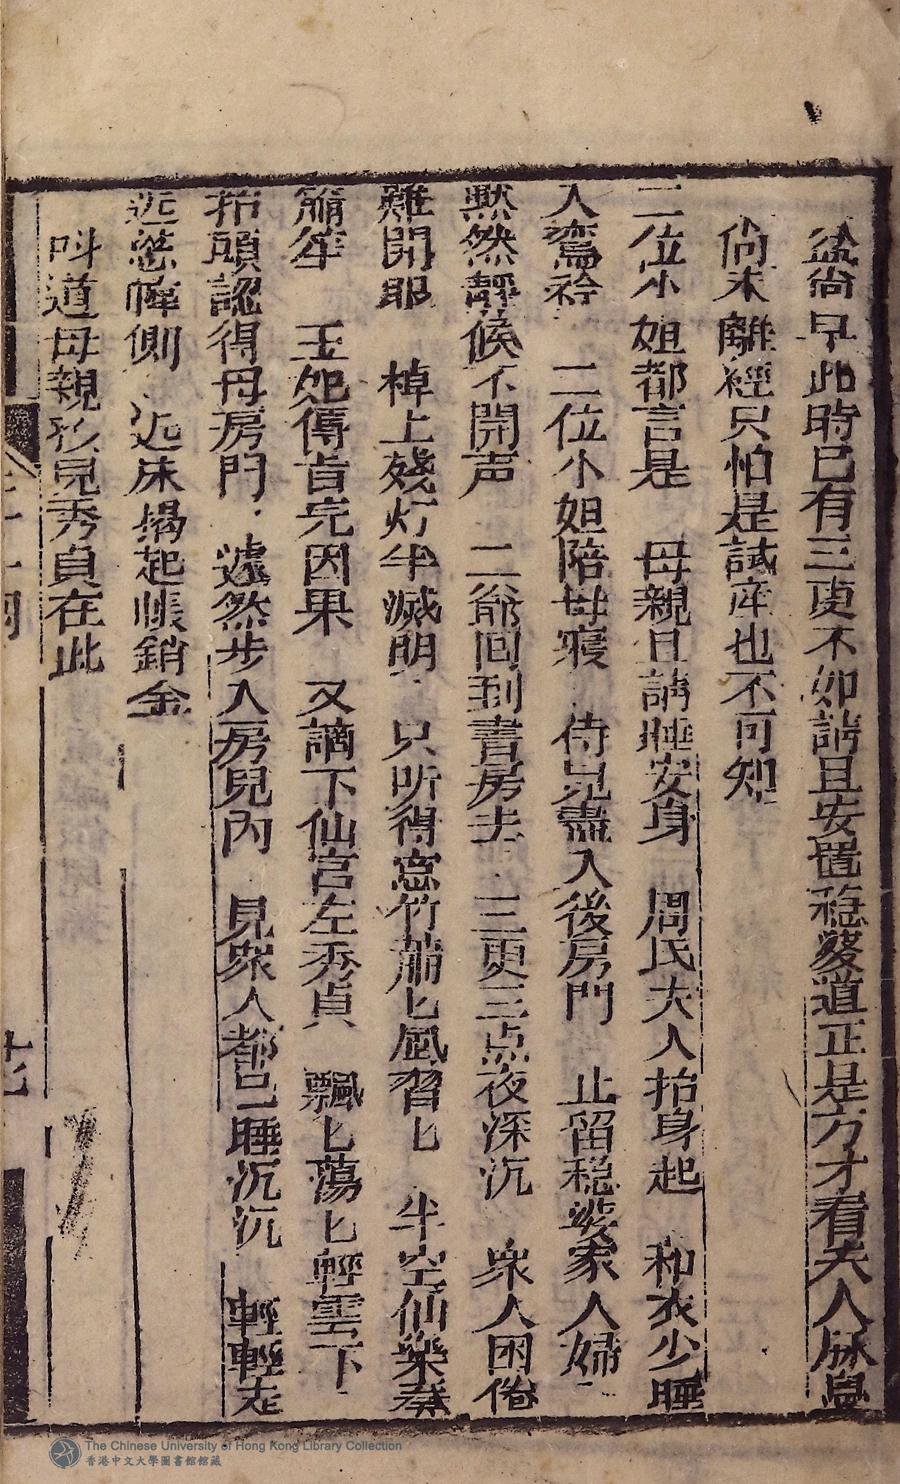 盆尚早此時已有三更不如請且安置穏婆道正是方才看夫人脉息
尚未離經只怕是試产也不可知
二位小姐都言是　母親且請睡安身　周氏夫人抬身起　和衣少睡
入鸞衾　二位小姐陪母寝　侍兒盡入後房門　止留穏婆家人婦
黙然靜候不開声　二爺囬到書房去　三更三点夜深沉　衆人困倦
難開眼　棹上殘灯半滅明　只听得窓竹蕭匕風習匕　半空仙樂奏
簫笙　玉妃傳旨完因果　又謫下仙宫左秀貞　飄匕蕩匕輕雲下
抬頭認得母房門　遽然步入房兒内　見衆人都已睡沉沉　輕輕走
近蒞幃側　近床揭起帳銷金
呌道母親孩兒秀貞在此
The Chinese University of Hong Kong Library Collection
香港中文大學圖書館館藏